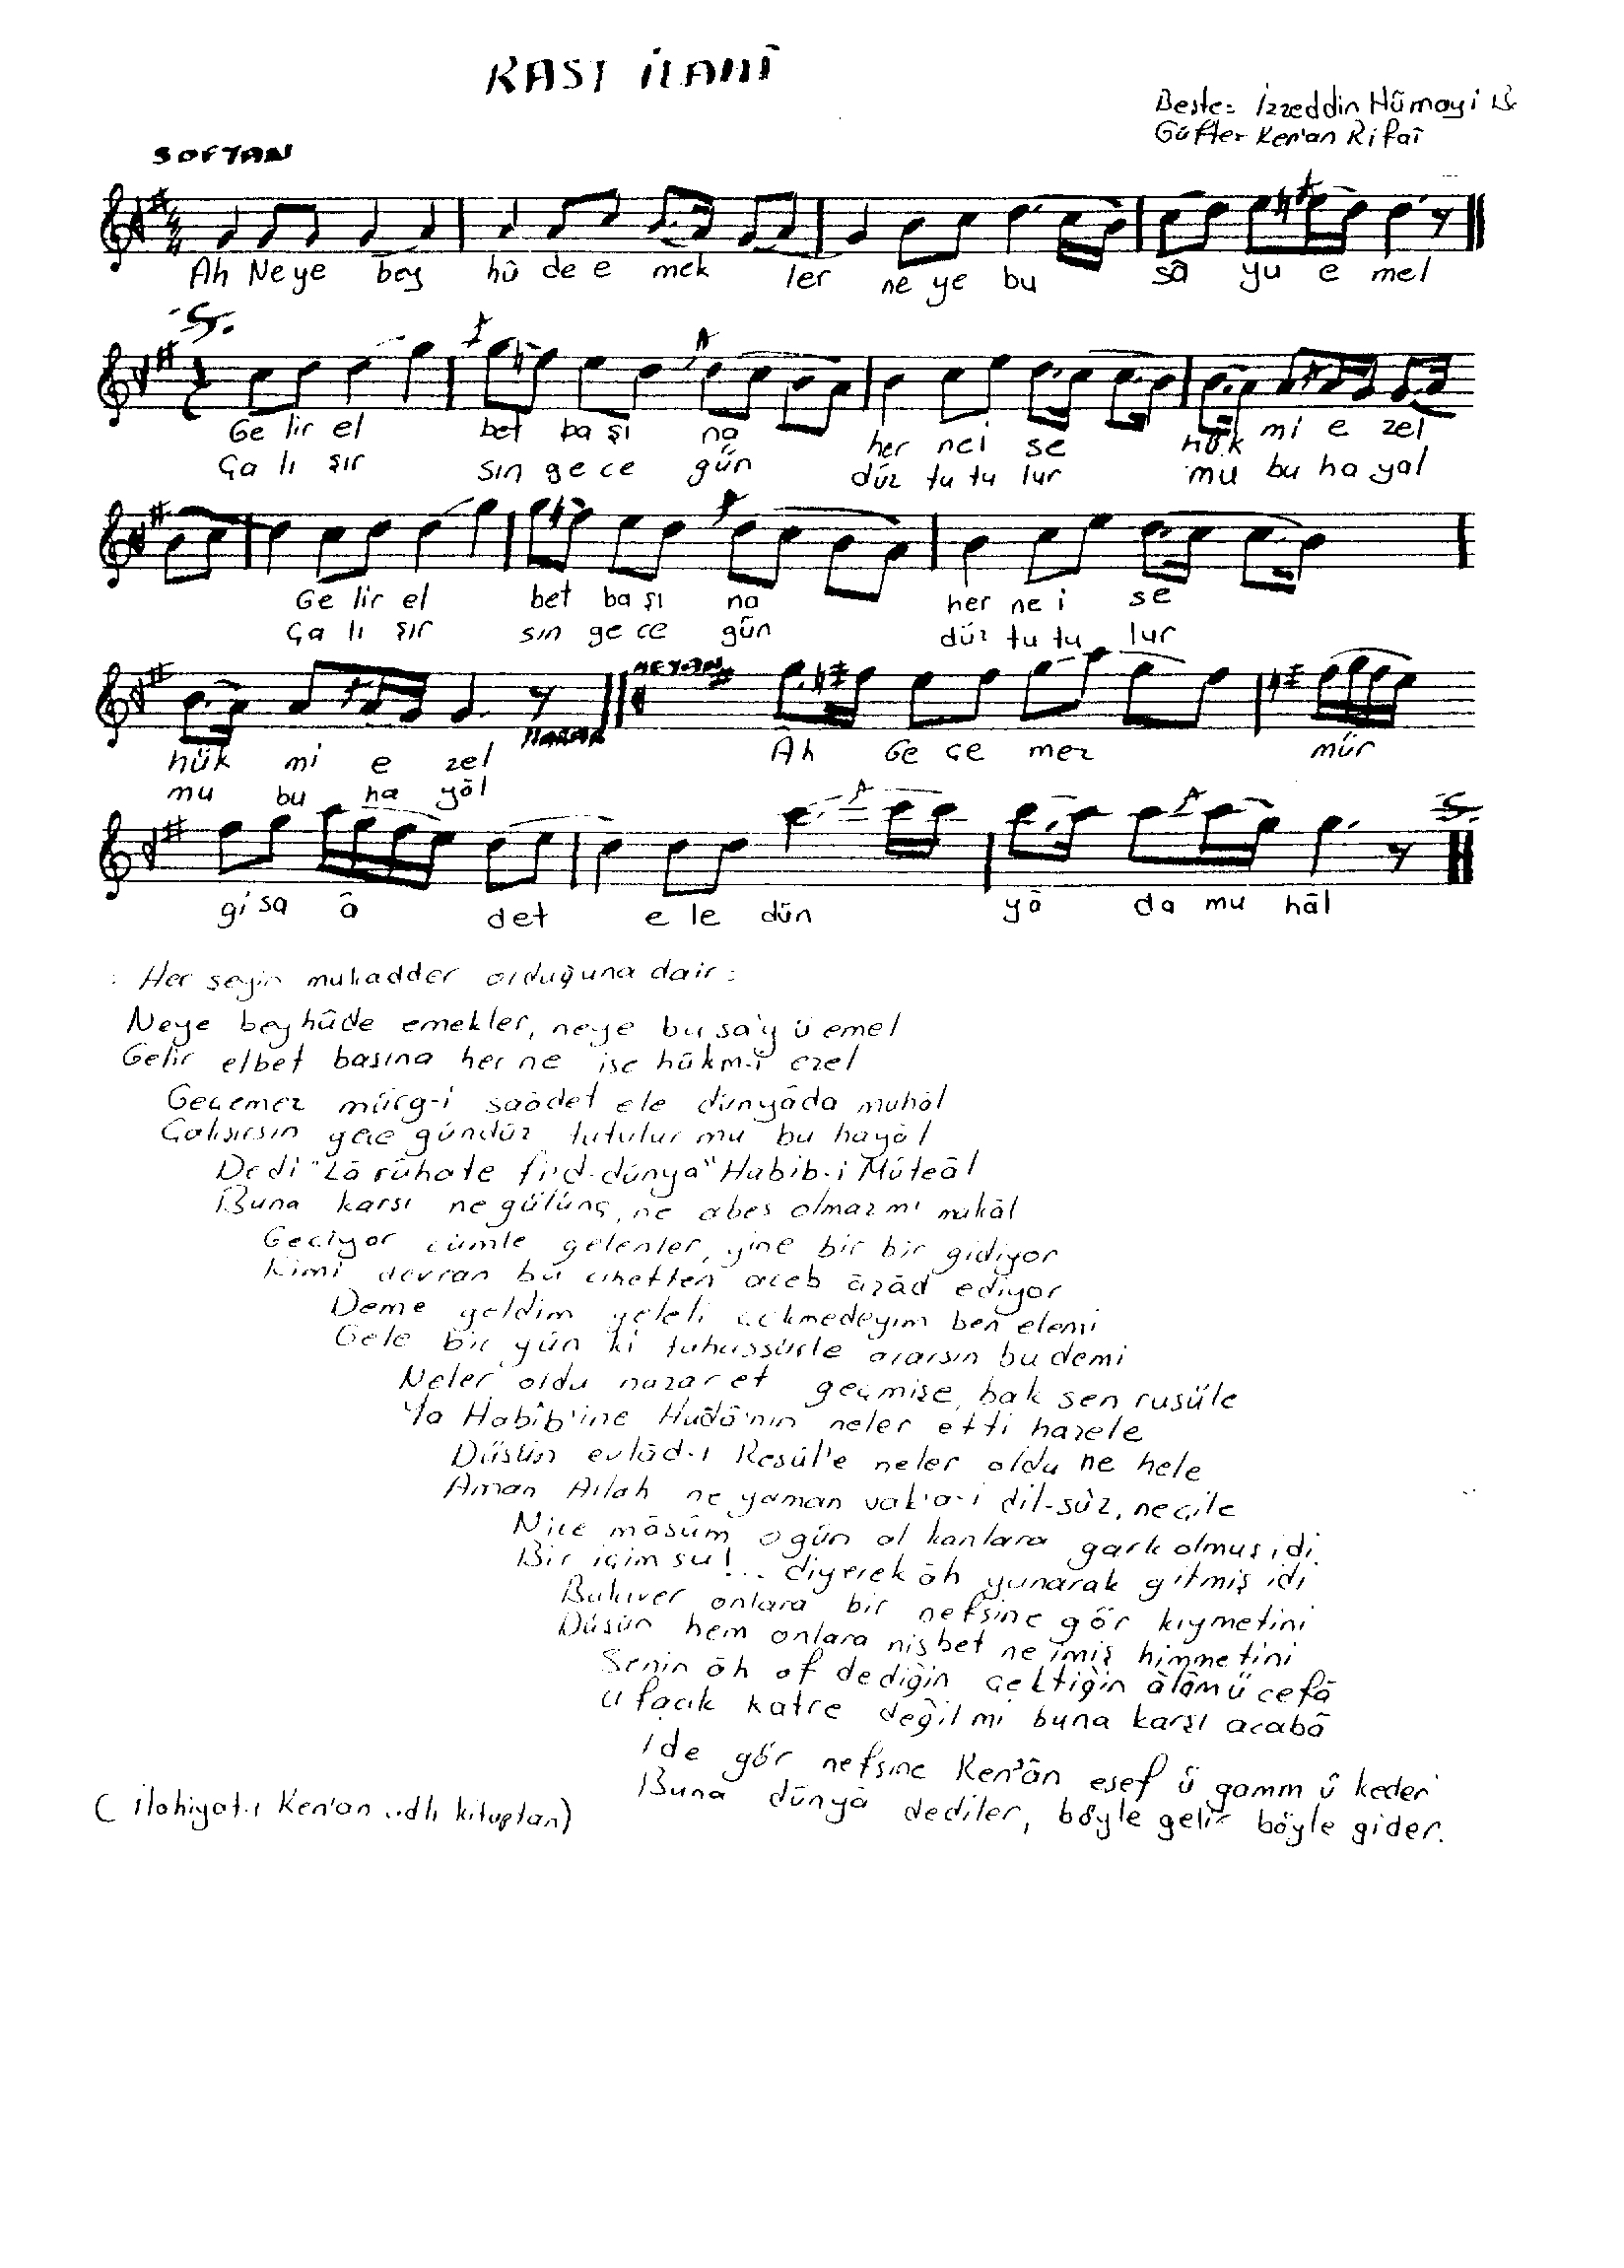 RAST İLAHÎ
Beste: İzzeddin Hümayi B.
Güfte: Ken'an Rifaî
SOFYAN
4
4
Ah Ne ye bey hû de e mek ler ne ye bu sâ yu e mel
Ge lir el bet ba şı na her ne i se hük mi e zel
Ça lı şır sın ge ce gün düz tu tu lur mu bu ha yal
Ge lir el bet ba şı na her ne i se
Ça lı şır sın ge ce gün düz tu tu lur
MEYAN
hük mi e zel Ah Ge çe mez mür
mu bu ha yâl
gi sa â det e le dün yâ da mu hâl
: Her şeyin mukadder olduğuna dair :
Neye beyhûde emekler, neye bu sa'y ü emel
Gelir elbet basına her ne ise hükm-i ezel
Geçemez mürg-i saâdet ele dünyâda muhâl
Çalısırsın gece gündüz tutulur mu bu hayâl
Dedi "Lâ râhate fi'd-dünya" Habib-i Müteâl
Buna karsı ne gülünç, ne abes olmaz mı makâl
Geciyor cümle gelenler, yine bir bir gidiyor
Kimi devran bu cihetten aceb âzâd ediyor
Deme geldim geleli çekmedeyim ben elemi
Gele bir gün ki tahassürle ararsın bu demi
Neler oldu nazar et geçmişe, bak sen rusüle
Ya Habîb'ine Hudâ'nın neler etti hazele
Düsün evlâd-ı Resûl'e neler oldu ne hele
Aman Allah ne yaman vak'a-i dil-sûz, ne çile
Nice mâsûm o gün al kanlara gark olmuş idi.
Bir içim su!... diyerek âh yanarak gitmiş idi
Bakıver onlara bir nefsine gör kıymetini
Düsün hem onlara nisbet ne imiş himmetini
Senin âh of dediğin çektiğin âlâm ü cefâ
Ufacık katre değil mi buna karşı acabâ
İde gör nefsine Ken'ân esef ü gamm û keder
Buna dünyâ dediler, böyle gelir böyle gider.
( İlahiyat-ı Ken'an adlı kitaptan)